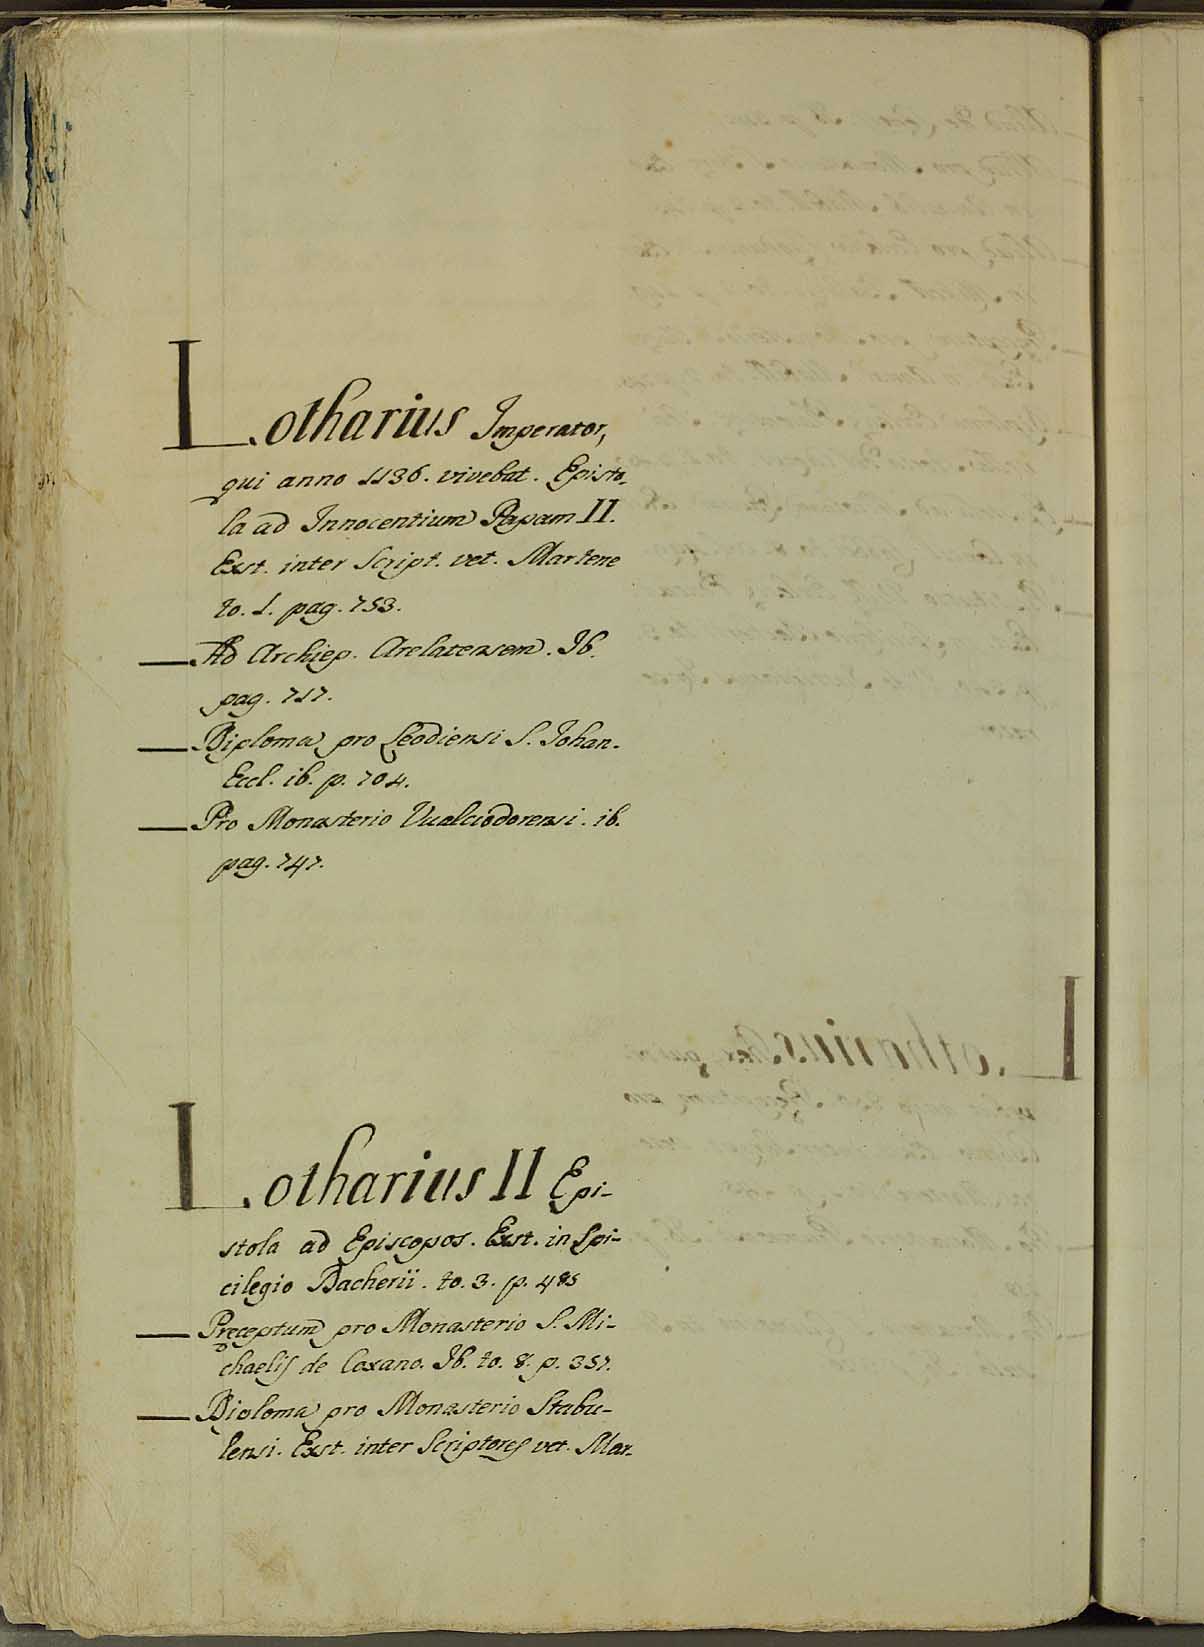 Lotharius Imperator,
qui anno 1136. vivebat. Episto-
la ad Innocentium Papam II.
Exst. inter Script. vet. Martene
to. 1. pag. 753.
— Ad Archiep. Arelatensem. Ib.
pag. 717.
— Diploma pro Leodiensi S. Johan.
Eccl. ib. p. 704.
— Pro Monasterio Vualciodorensi. ib.
pag. 747.
Lotharius II Epi-
stola ad Episcopos. Exst. in Spi-
cilegio Dacherii. to. 3. p. 485
— Pręceptum pro Monasterio S. Mi-
chaelis de Coxano. Ib. to. 8. p. 357.
— Diploma pro Monasterio Stabu-
lensi. Exst. inter Scriptores vet. Mar-